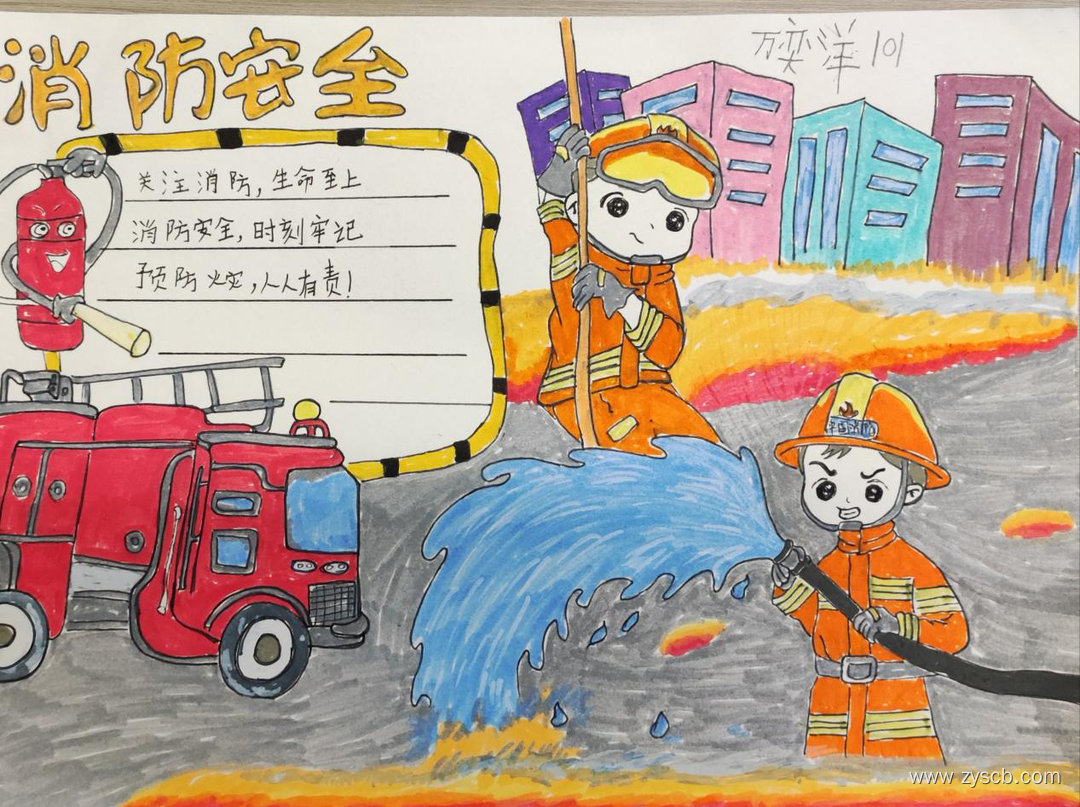 消防安全
万奕洋 101
关注消防,生命至上
消防安全,时刻牢记
预防火灾,人人有责!
www.zyscb.com